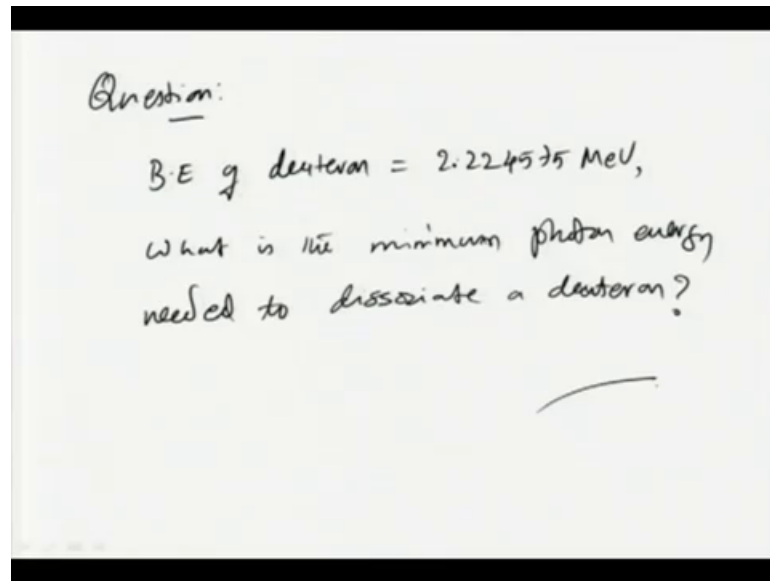 Question:
B.E of deuteron = 2.224575 MeV,
What is the minimum photon energy
needed to dissociate a deuteron?